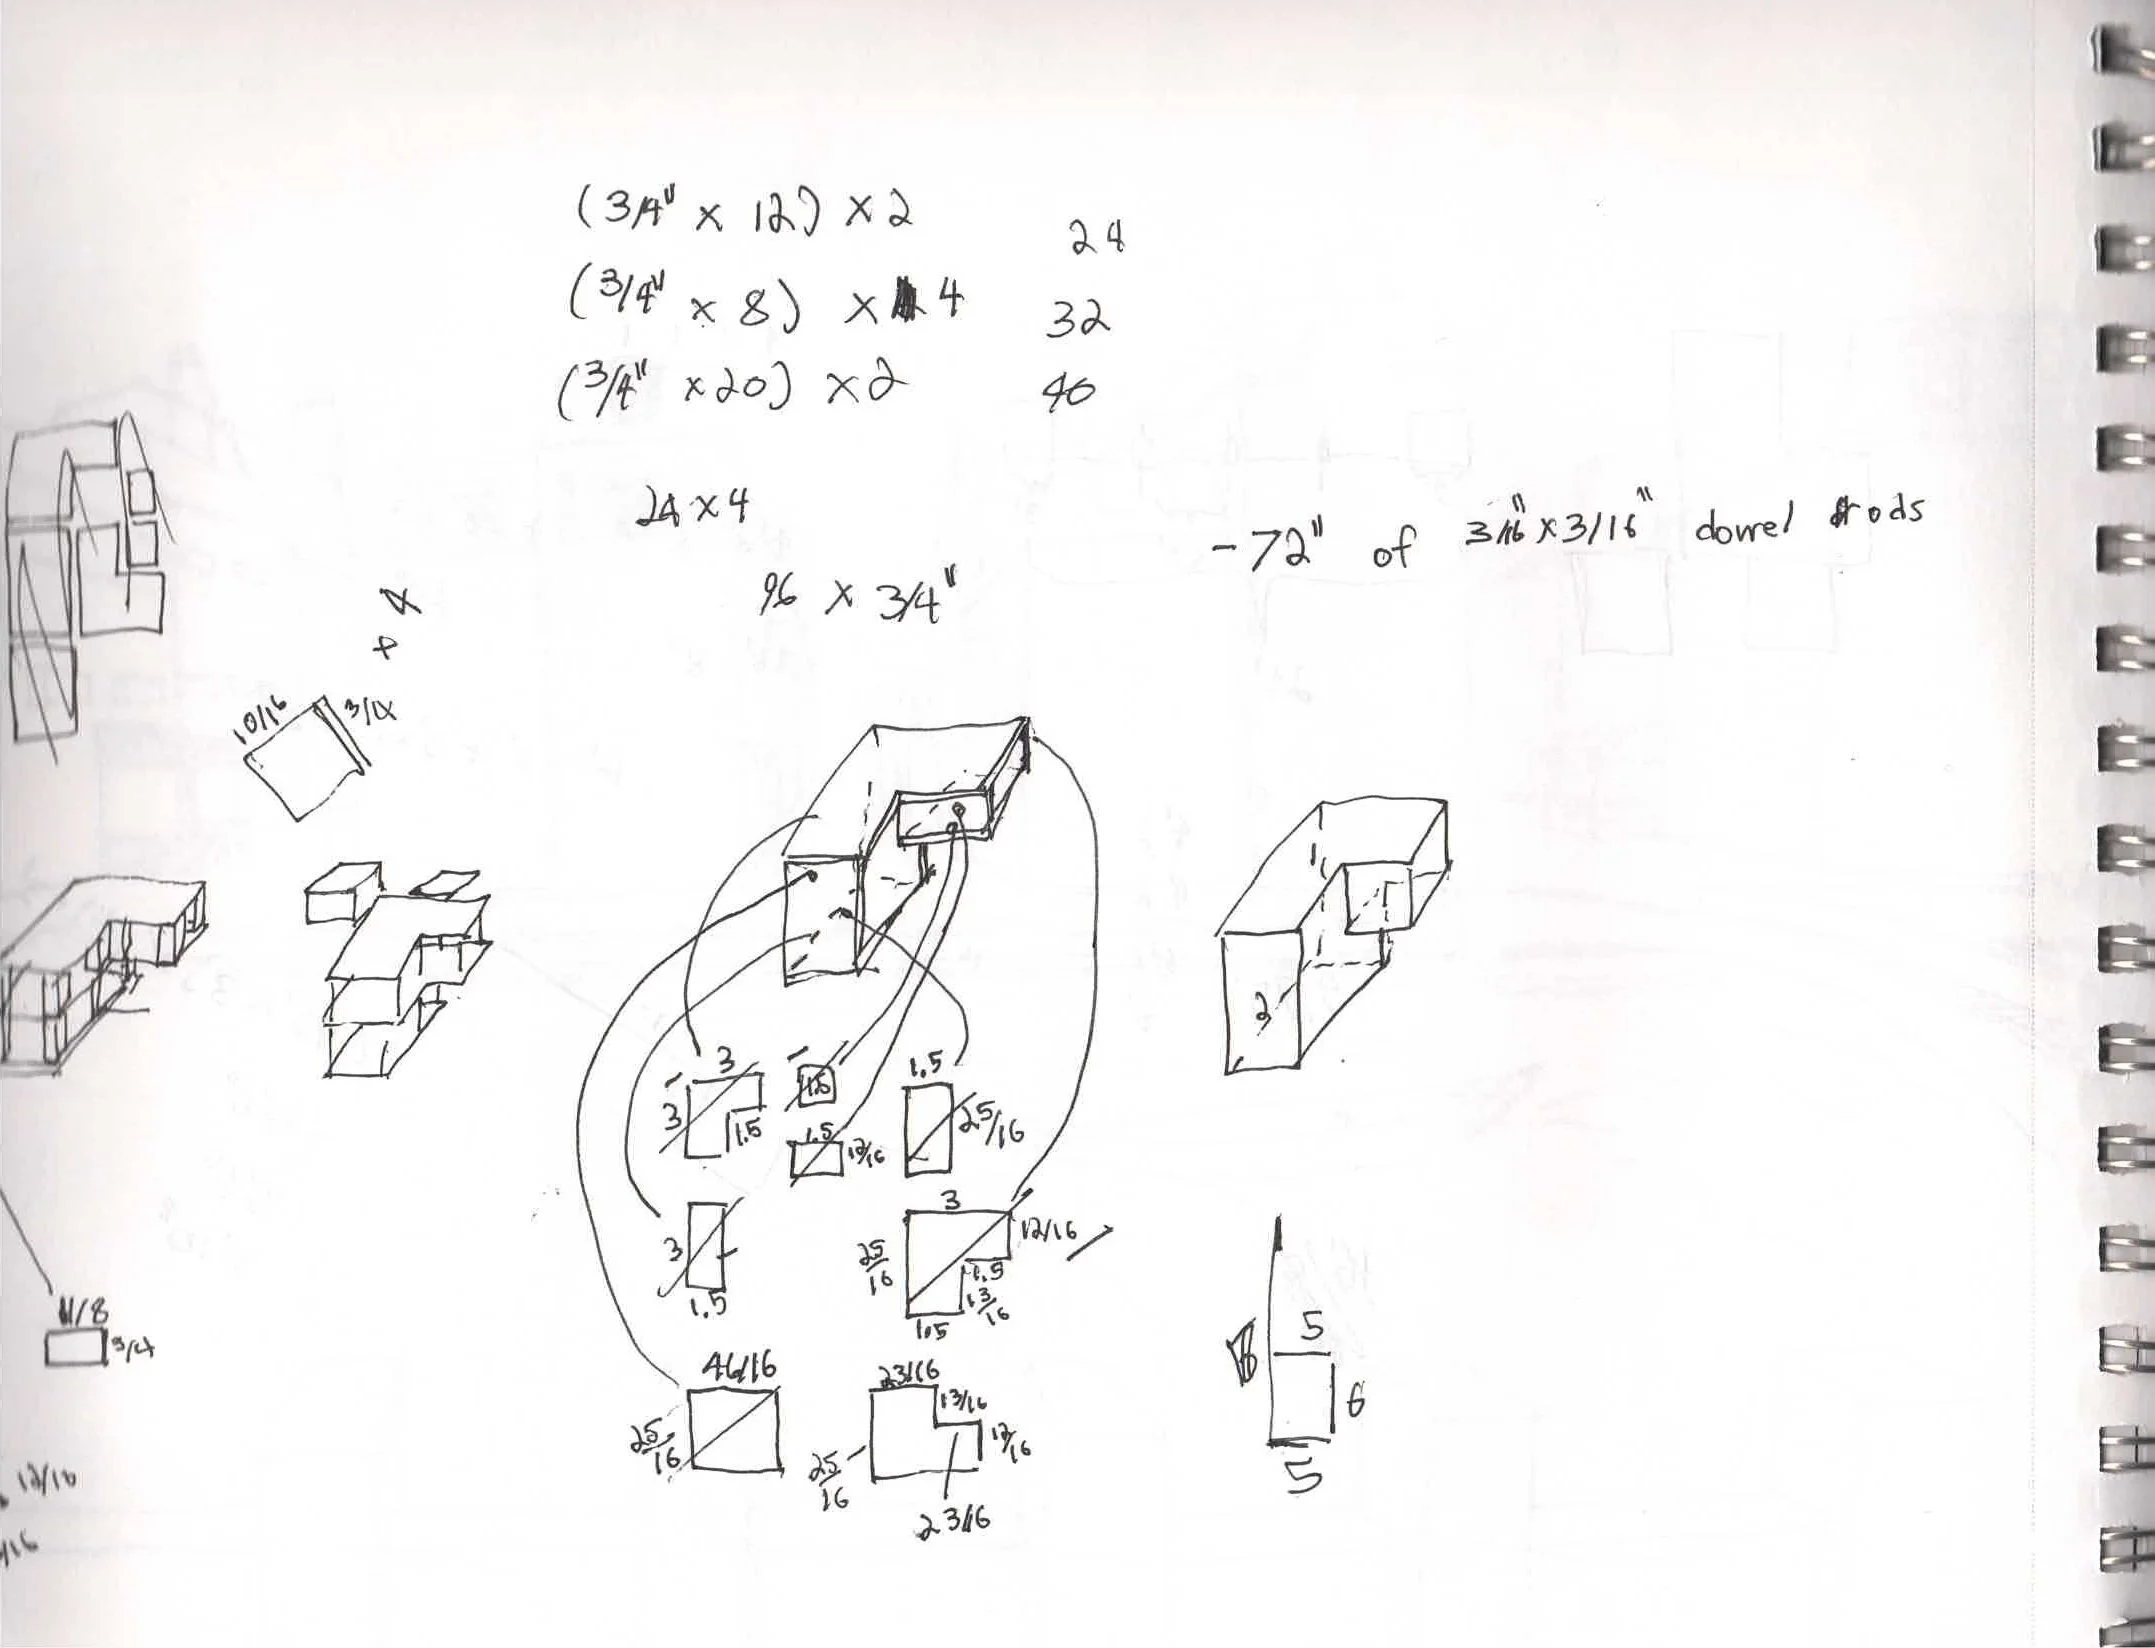 (3/4" x 12) x 2
24
(3/4" x 8) x 4
32
(3/4" x 20) x 2
40
24 x 4
96 x 3/4"
-72" of 3/16" x 3/16" dowel rods
x 4
10/16
3
3
1.5
1.5
1.5
12/16
1.5
25/16
3
1.5
3
25/16
12/16
1.5
13/16
1.5
46/16
25/16
23/16
13/16
12/16
25/16
23/16
2
5
6
5
11/8
3/4
12/16